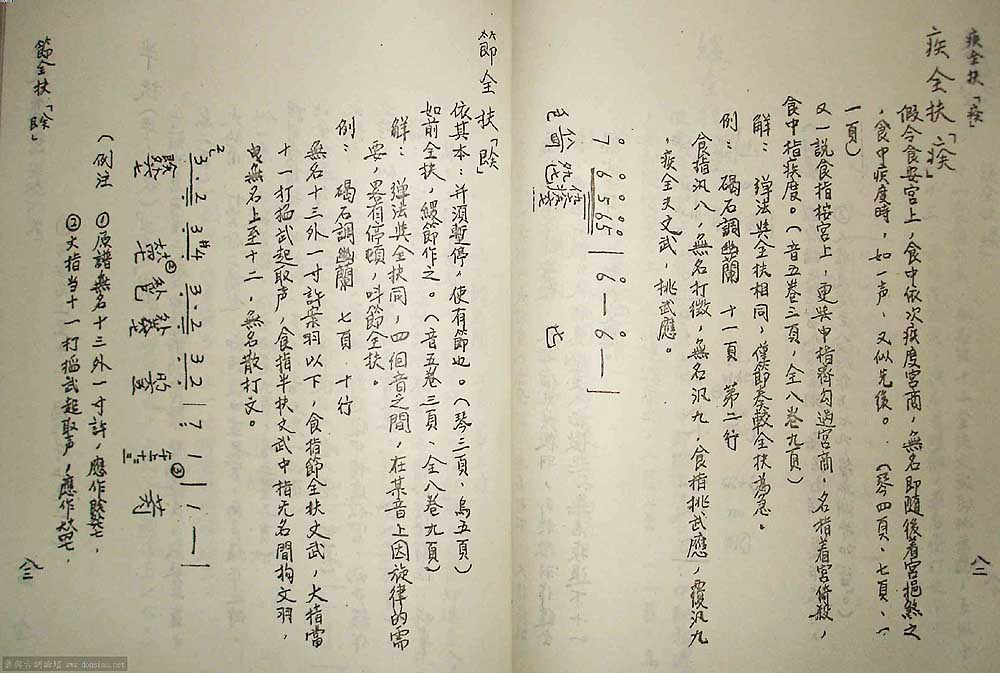 疾全扶「㾐」
疾全扶「㾐」
假令食安宮上，食中依次疾度宮商，無名即隨後着宮挹煞之
，食中疾度時，如一声，又似先後。（琴四頁、七頁、一
一頁）
又一説食指按宮上，更與中指齊勾過宮商，名指着宮倚殺，
食中指疾度。（音五卷三頁，全八卷九頁）
解：彈法與全扶相同，僅節奏較全扶為急。
例：碣石調幽蘭 十一頁 第二行
食指汎八，無名打徵，無名汎九，食指挑武應，覆汎九
，疾全夫文武，挑武應。
7 6 5 6 5 | 6 — 6 — |
八二
節全扶
依其本：并須蹔停，使有節也。（琴三頁、烏五頁）
如前全扶，緩節作之。（音五卷三頁、全八卷九頁）
解：彈法與全扶同，四個音之間，在某音上因旋律的需
要，畧有停頓，叫節全扶。
例：碣石調幽蘭 七頁 十行
無名十三外一寸許案羽以下，食指節全扶文武，大指當
十一打搯武起取声，食指半扶文武中指无名間拘文羽，
曳無名上至十二，無名散打文。
3·2 3 #4 3·2 3 2 | 7 1 | 1 — |
（例注
①原譜無名十三外一寸許，應作
②大指当十一打搯武起取声，應作
節全扶
八三
www.donsiau.net